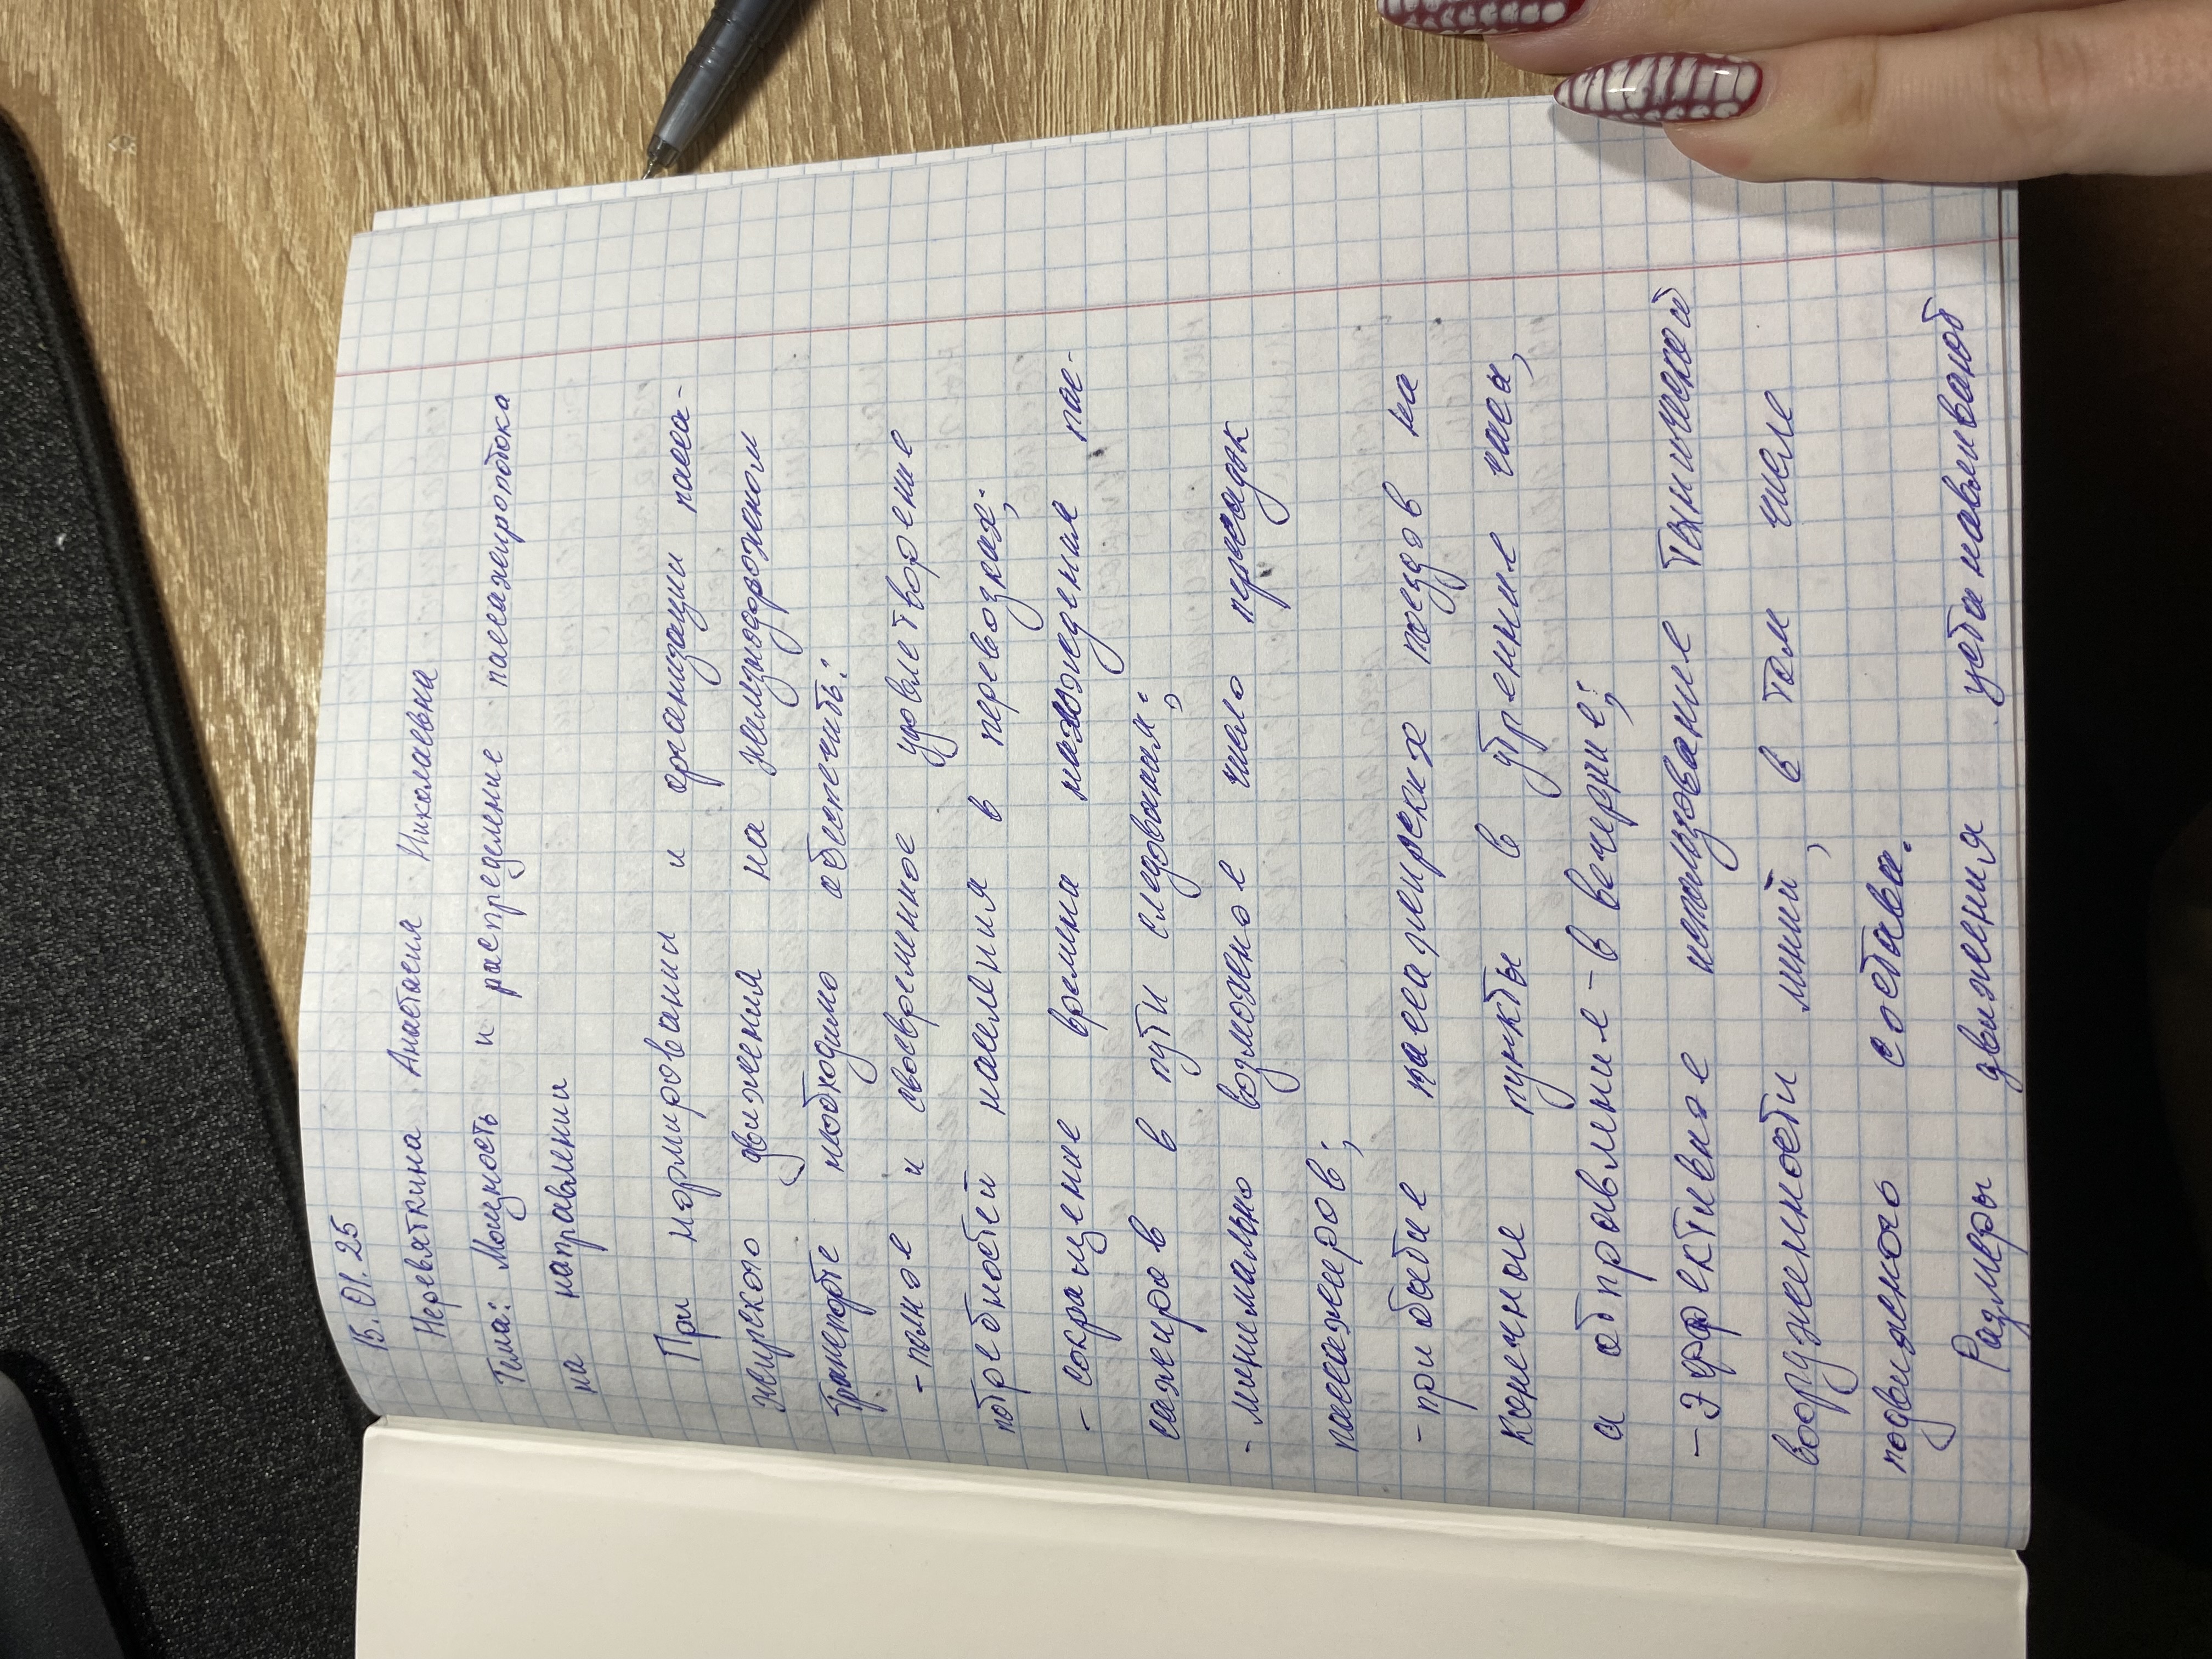 15.01.25
Неревяткина Анастасия Николаевна
Тема: Мощность и распределение пассажиропотока
на направлении
При нормировании и организации пасса-
жирского движения на железнодорожном
транспорте необходимо обеспечить:
- полное и своевременное удовлетворение
потребностей населения в перевозках;
- сокращение времени нахождения пас-
сажиров в пути следования;
- минимально возможное число пересадок
пассажиров;
- прибытие пассажирских поездов на
конечные пункты в утренние часы,
а отправление - в вечерние;
- эффективное использование технической
вооруженности линий, в том числе
подвижного состава.
Размеры движения устанавливают